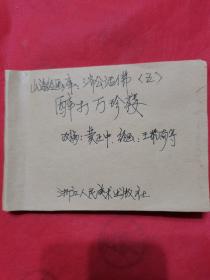 山海经画库：济公活佛〈五〉
醉打万珍楼
改编：黄正中、绘画：王敬
浙江人民美术出版社